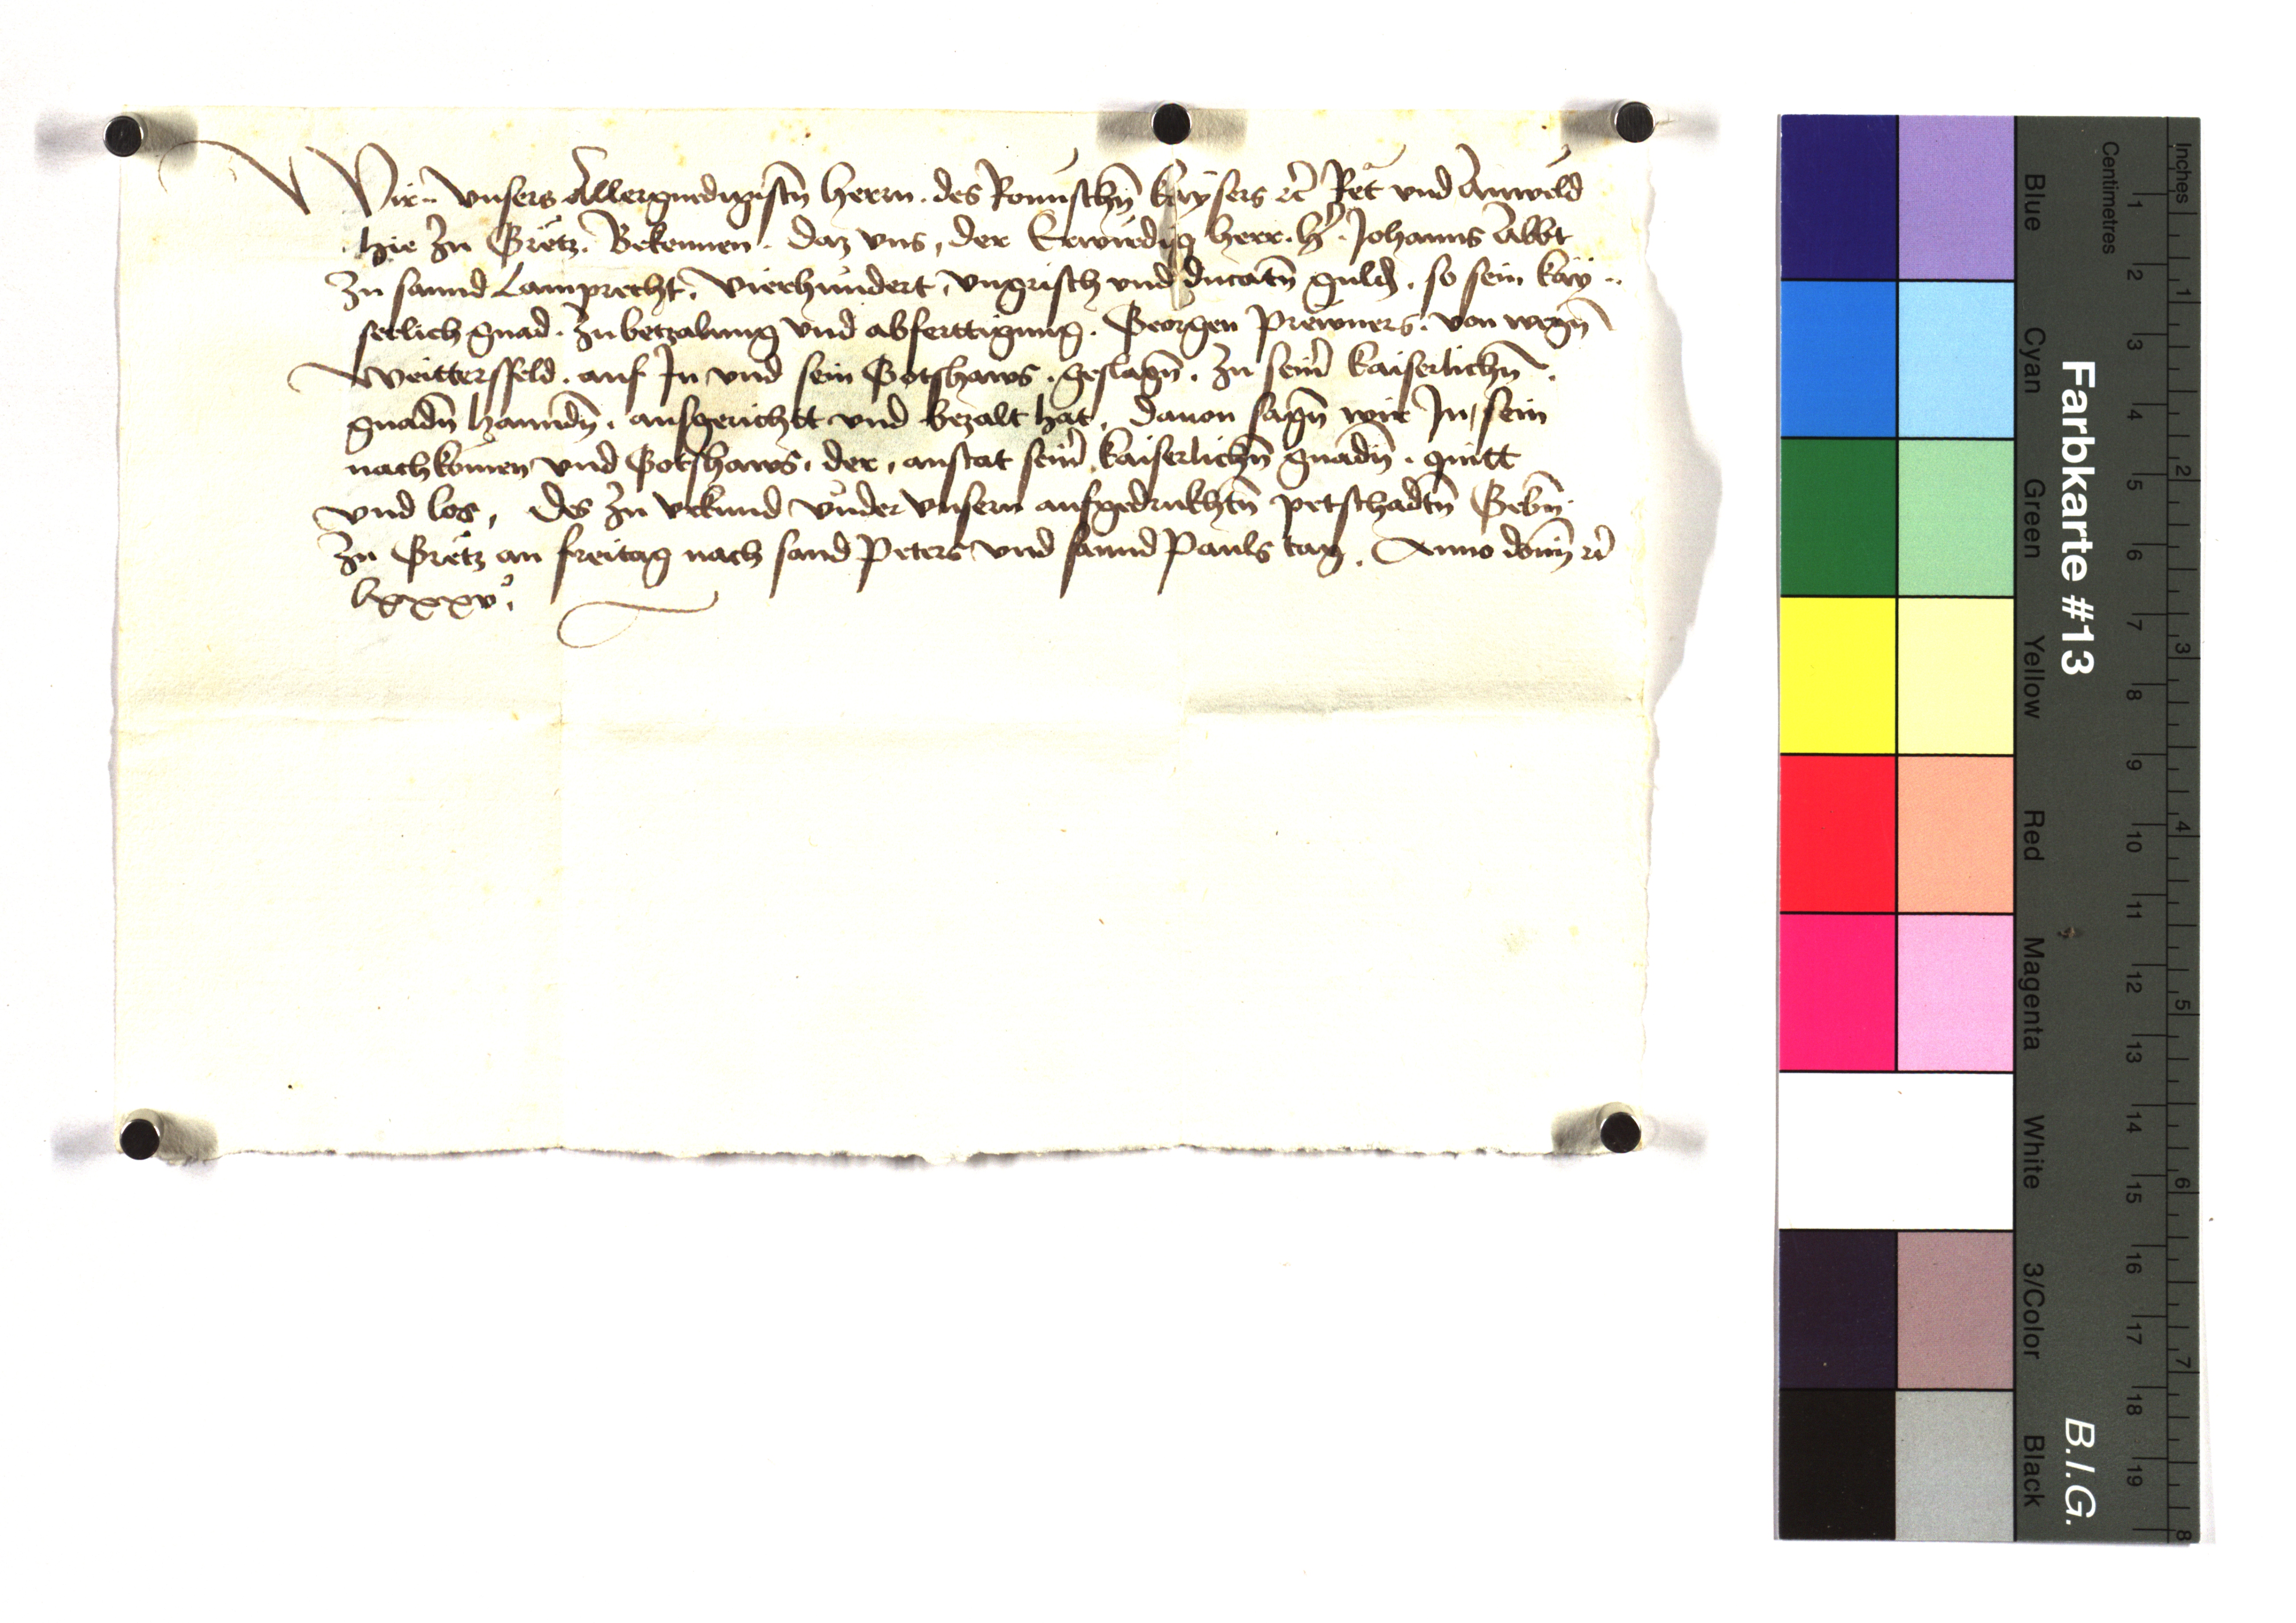 Wir vnsers Allergnedigistn̄ herrn. des Romischn̄ kaysers ꝛc̄ Ret vnd Anweld
hie zu Gretz. Bekennen. daz vns, der Erwirdig herr. hr̄. Johanns Abbt
zu sannd Lamprecht, vierhundert, vngrisch vnd ducatn̄ guld, so sein kay
serlich gnad. zu betzalung vnd abferttigung. Georgen Prewners. von wegn̄
Weittersfeld. auf In vnd sein Gotshaws. geslagn̄. zu sein̄ kaiserlichn̄.
gnadn̄ hanndn̄. ausgericht vnd bezalt hat, dauon sagn̄ wir In, sein
nachkomen vnd Gotshaws, der, anstat sein̄ kaiserlichn̄ gnadn̄. quitt
vnd los, des zu vrkund vnder vnsern aufgedrukhtn̄ petschadtn̄ Gebn̄
zu Gretz an freitag nach sand Peters vnd sannd Pauls tag. Anno domī ꝛc̄
lxxxvº.
Inches
Centimetres
1 2 3 4 5 6 7 8 9 10 11 12 13 14 15 16 17 18 19
1 2 3 4 5 6 7 8
Farbkarte #13
B.I.G.
Blue
Cyan
Green
Yellow
Red
Magenta
White
3/Color
Black